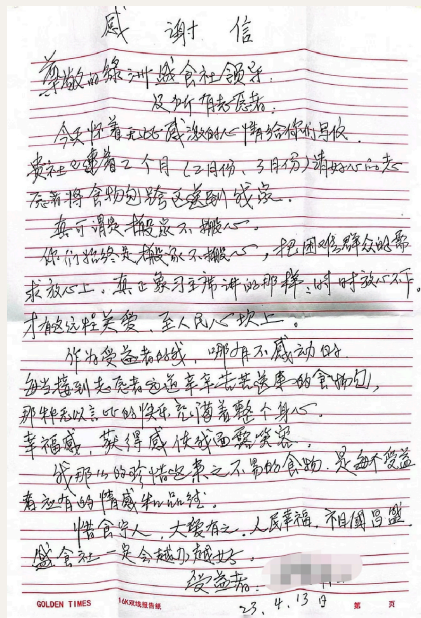 感谢信
尊敬的綠洲盛食社领导.
及所有志愿者.
今天怀着无比感激的心情给你们写信.
贵社连着2个月(2月份、3月份)请好心的志
愿者将食物包跨区送到我家.
真可谓是搬家不搬心.
你们始终是搬家不搬心, 把困难群众的需
求放心上. 真正象习主席讲的那样:时时放心不下.
才有这远程关爱. 至人民心坎上.
作为受益者的我, 哪有不感动的.
每当接到志愿者远道辛辛苦苦送来的食物包,
那种无以言比的快乐充满着整个身心.
幸福感, 获得感使我面露笑容.
我那么的珍惜这来之不易的食物. 是每个受益
者应有的情感和品德.
惜食守人, 大爱有之. 人民幸福. 祖国昌盛.
盛食社一定会越办越好.
受益者:
23. 4. 13日
GOLDEN TIMES 16K双线报告纸 第 页